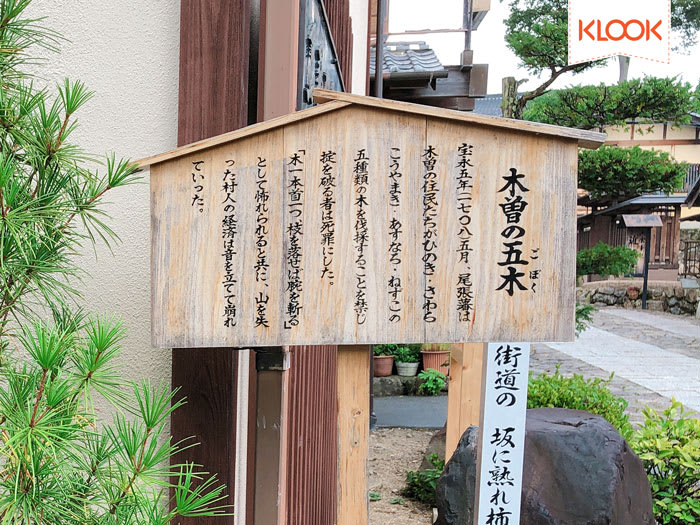 木曽の五木
ごぼく
宝永五年(一七〇八)五月、尾張藩は
木曽の住民たちがひのき・さわら
こうやまき・あすなろ・ねずこの
五種類の木を伐採することを禁じ
掟を破る者は死罪にした。
「木一本首一つ、枝を落せば腕を斬る」
として怖れられると共に、山を失
った村人の経済は音を立てて崩れ
ていった。
街道の 坂に熟れ柿
KLOOK